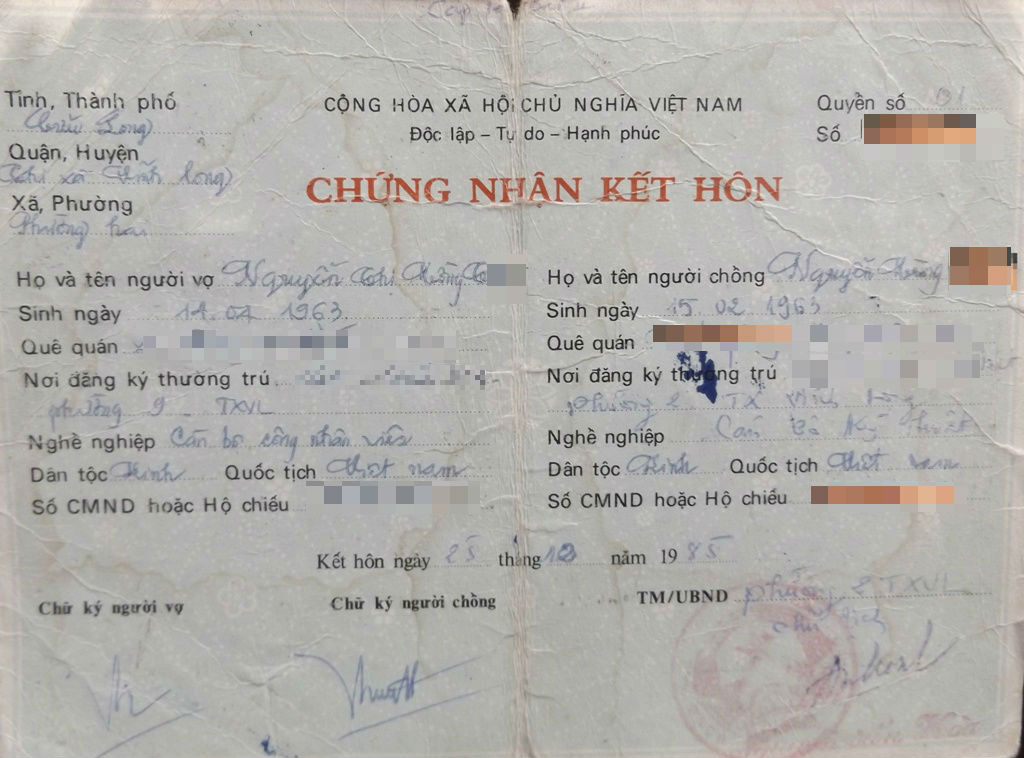 Tỉnh, Thành phố
Cửu Long
CỘNG HÒA XÃ HỘI CHỦ NGHĨA VIỆT NAM
Quyển số 01
Độc lập – Tự do – Hạnh phúc
Số
Quận, Huyện
Thị xã Vĩnh Long
CHỨNG NHẬN KẾT HÔN
Xã, Phường
Phường hai
Họ và tên người vợ Nguyễn Thị Hường
Họ và tên người chồng Nguyễn Hoàng
Sinh ngày 14.04 1963
Sinh ngày 15 02 1963
Quê quán
Quê quán
Nơi đăng ký thường trú
Nơi đăng ký thường trú
phường 9 - TXVL
phường 2 TX Vĩnh Long
Nghề nghiệp Cán bộ công nhân viên
Nghề nghiệp Cán bộ kỹ thuật
Dân tộc Kinh Quốc tịch Việt nam
Dân tộc Kinh Quốc tịch Việt nam
Số CMND hoặc Hộ chiếu
Số CMND hoặc Hộ chiếu
Kết hôn ngày 25 tháng 12 năm 1985
Chữ ký người vợ
Chữ ký người chồng
TM/UBND phường 2 TXVL
chủ tịch